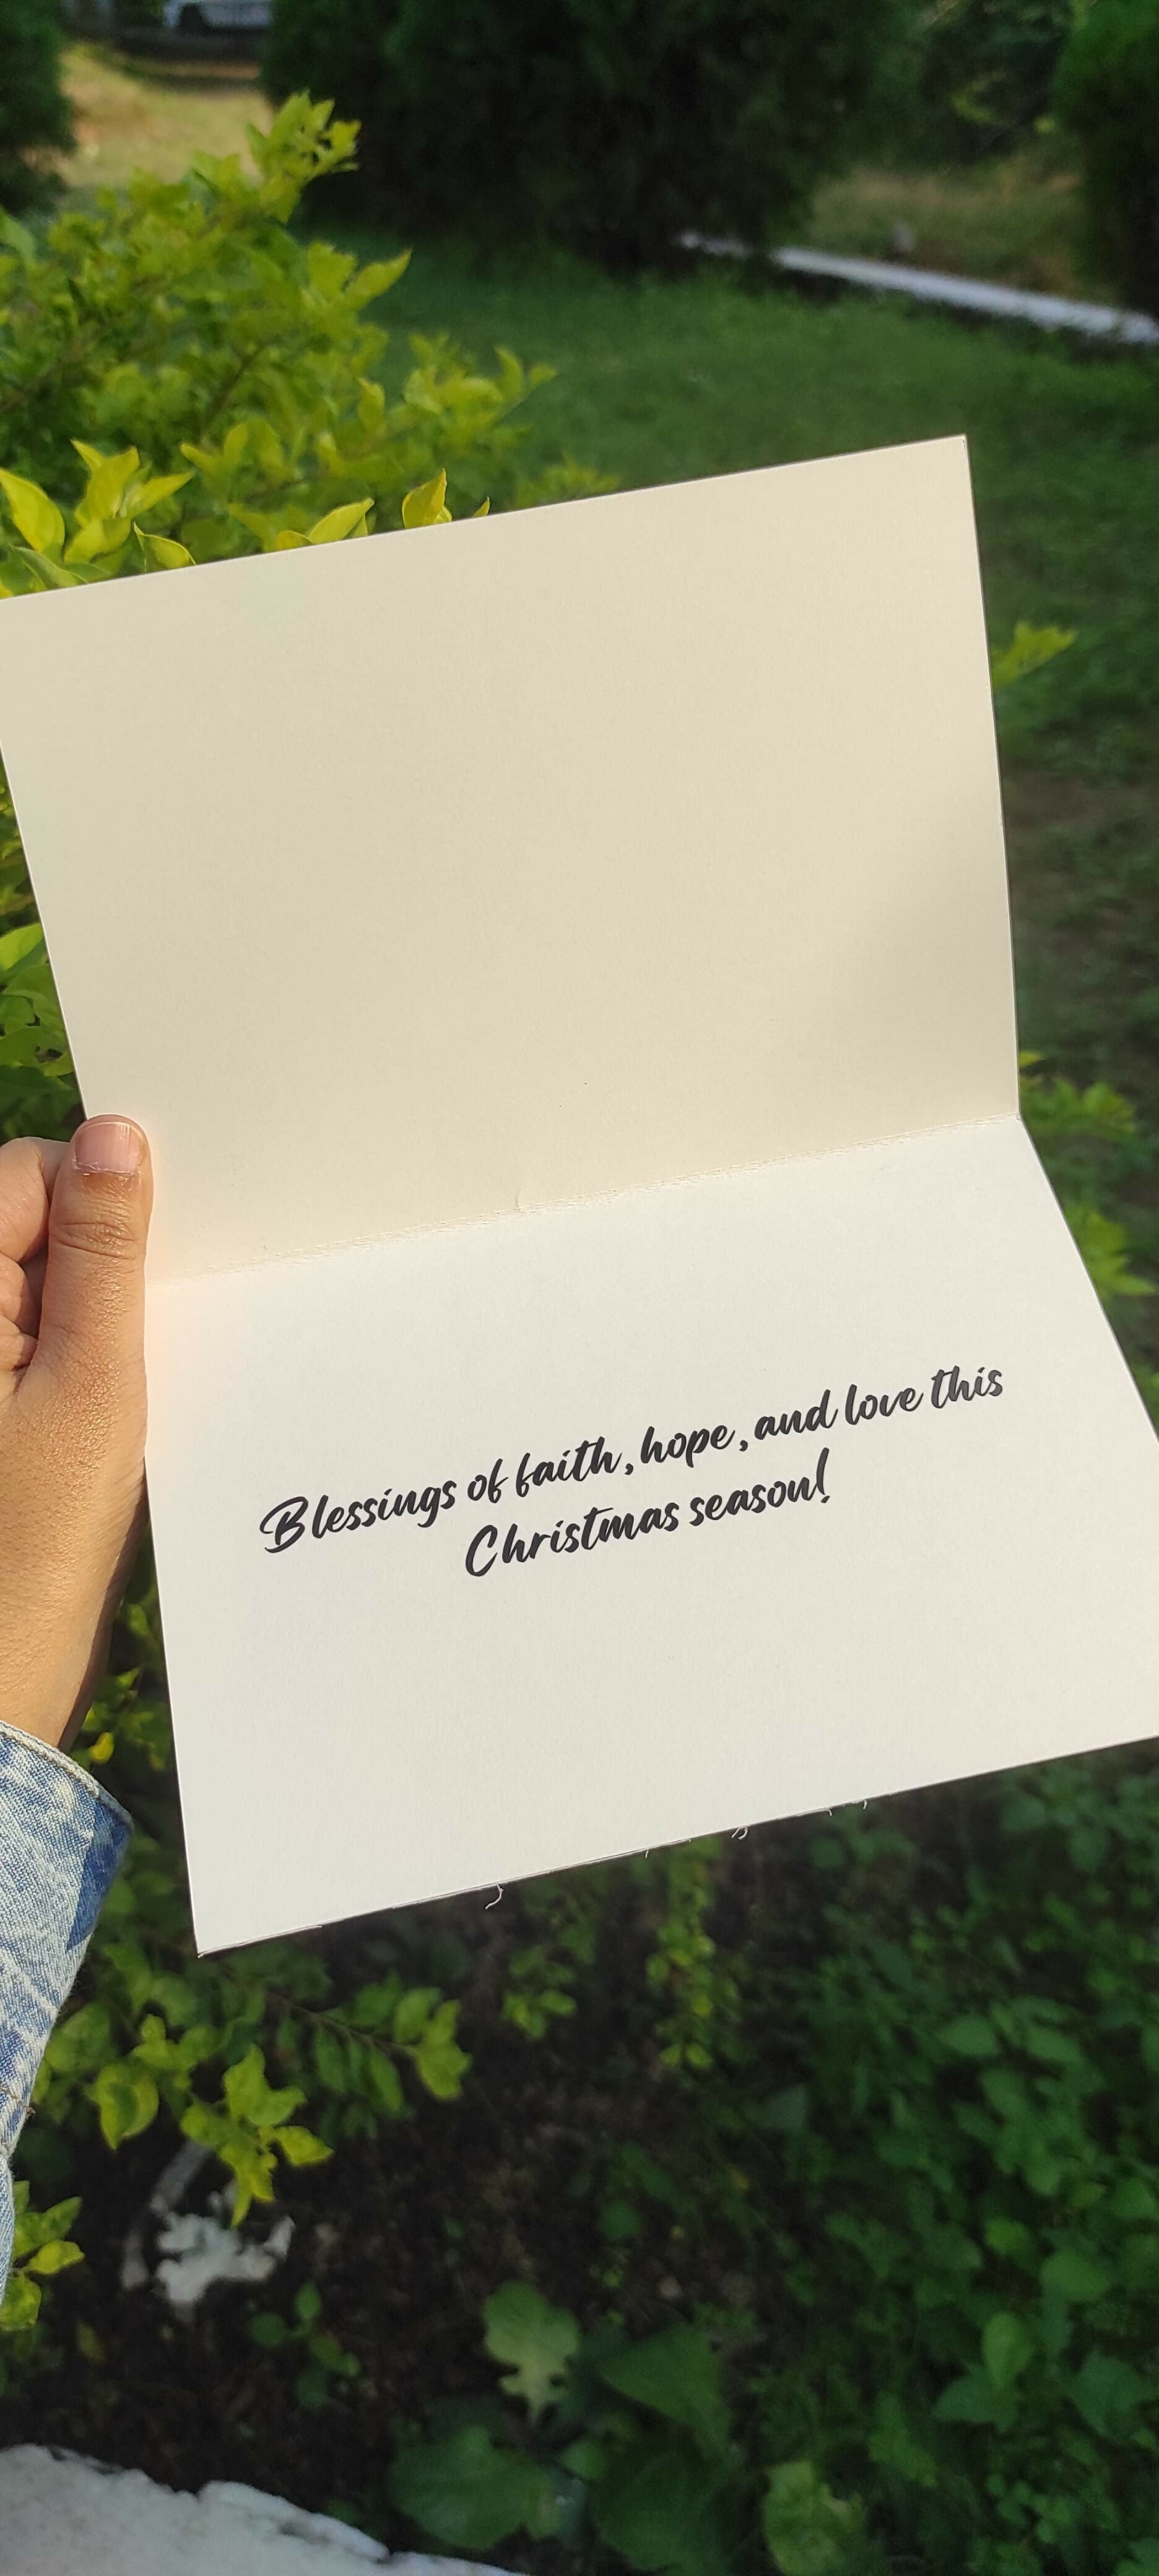 Blessings of faith, hope, and love this
Christmas season!